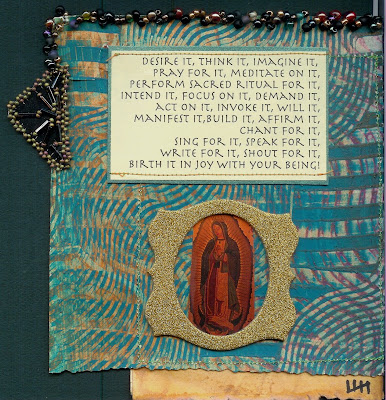 DESIRE IT, THINK IT, IMAGINE IT,
PRAY FOR IT, MEDITATE ON IT,
PERFORM SACRED RITUAL FOR IT,
INTEND IT, FOCUS ON IT, DEMAND IT,
ACT ON IT, INVOKE IT, WILL IT,
MANIFEST IT,BUILD IT, AFFIRM IT,
CHANT FOR IT,
SING FOR IT, SPEAK FOR IT,
WRITE FOR IT, SHOUT FOR IT,
BIRTH IT IN JOY WITH YOUR BEING!